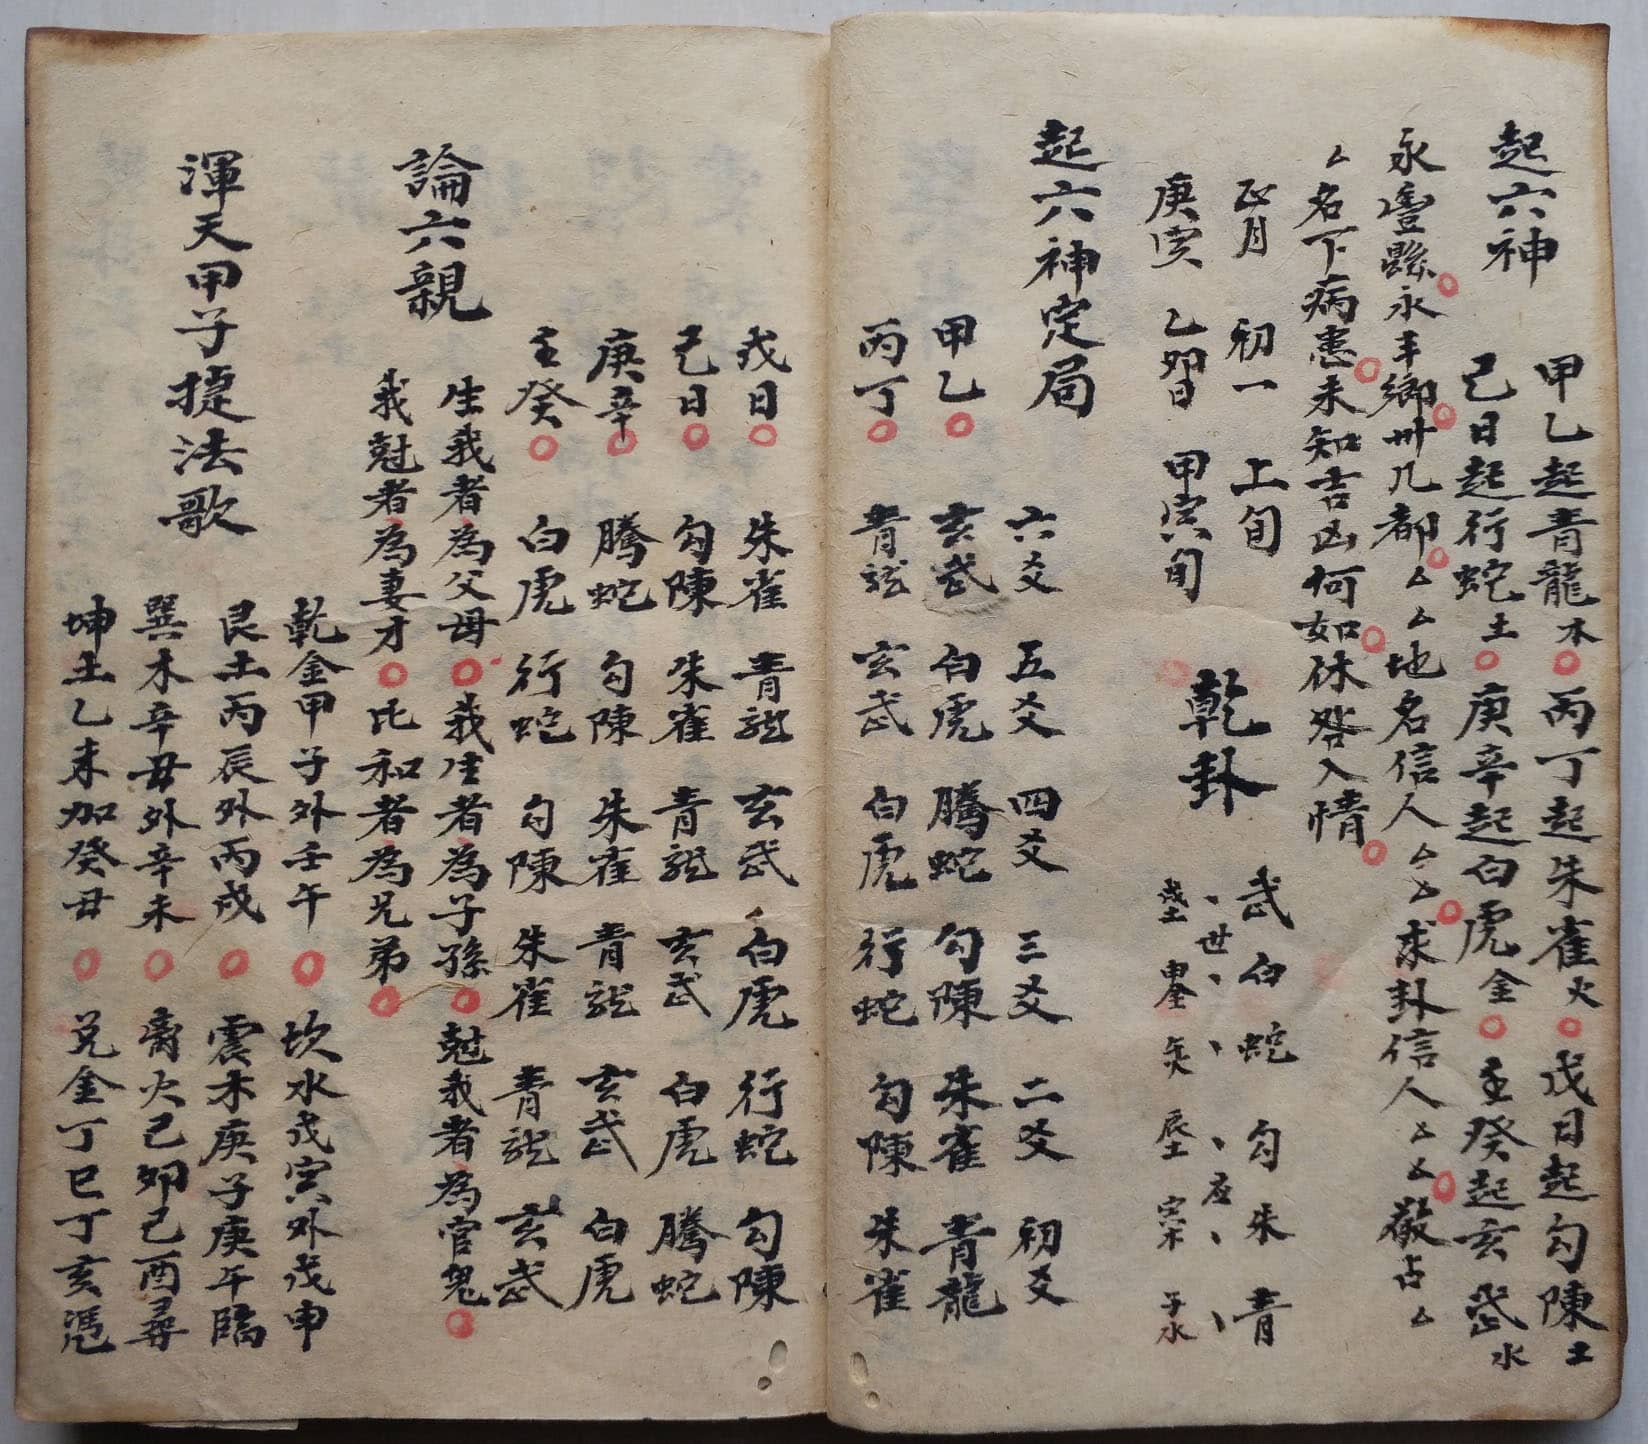 起六神
甲乙起青龍木 丙丁起朱雀火 戊日起勾陳土
己日起行蛇土 庚辛起白虎金 壬癸起玄武水
永豐縣永丰鄉卅几都厶厶地名信人厶厶求卦信人厶厶敬占厶
厶名下病患未知吉凶何如休咎入情
正月 初一 上旬
庚寅 乙卯日 甲寅旬
乾卦
武 白 蛇 勾 朱 青
、世、、、应、、
戌土 申金 午火 辰土 寅木 子水
起六神定局
六爻 五爻 四爻 三爻 二爻 初爻
甲乙 玄武 白虎 騰蛇 勾陳 朱雀 青龍
丙丁 青龍 玄武 白虎 行蛇 勾陳 朱雀
戊日 朱雀 青龍 玄武 白虎 行蛇 勾陳
己日 勾陳 朱雀 青龍 玄武 白虎 騰蛇
庚辛 騰蛇 勾陳 朱雀 青龍 玄武 白虎
壬癸 白虎 行蛇 勾陳 朱雀 青龍 玄武
論六親
生我者為父母 我生者為子孫 尅我者為官鬼
我尅者為妻才 比和者為兄弟
渾天甲子捷法歌
乾金甲子外壬午 坎水戊寅外戊申
艮土丙辰外丙戌 震木庚子庚午臨
巽木辛丑外辛未 离火己卯己酉尋
坤土乙未加癸丑 兌金丁巳丁亥憑